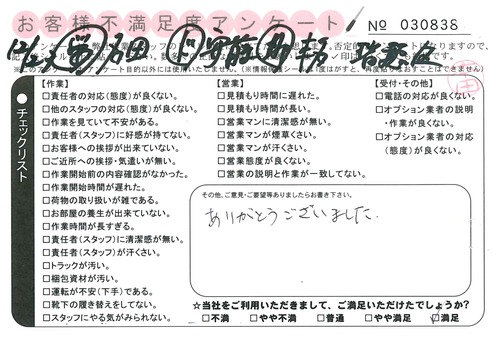 お客様不満足度アンケート
No 030838
※このアンケートは目的以外には使用いたしません。(※情報保護シール1度はがすと、再度貼りなおすことはできません)
チェックリスト
【作業】
□責任者の対応(態度)が良くない。
□他のスタッフの対応(態度)が良くない。
□作業を見ていて不安がある。
□責任者(スタッフ)に好感が持てない。
□お客様への挨拶が出来ていない。
□ご近所への挨拶・気遣いが無い。
□作業開始前の内容確認がなかった。
□作業開始時間が遅れた。
□荷物の取り扱いが雑である。
□お部屋の養生が出来ていない。
□作業時間が長すぎる。
□責任者(スタッフ)に清潔感が無い。
□責任者(スタッフ)が汗くさい。
□トラックが汚い。
□梱包資材が汚い。
□運転が不安(下手)である。
□靴下の履き替えをしてない。
□スタッフにやる気がみられない。
【営業】
□見積もり時間に遅れた。
□見積もり時間が長い。
□営業マンに清潔感が無い。
□営業マンが煙草くさい。
□営業マンが汗くさい。
□営業態度が良くない。
□営業の説明と作業が一致してない。
【受付・その他】
□電話の対応が良くない。
□オプション業者の説明
・作業が良くない。
□オプション業者の対応
(態度)が良くない。
その他、ご意見・ご要望等ありましたらお書き下さい。
ありがとうございました.
☆当社をご利用いただきまして、ご満足いただけたでしょうか?
□不満 □やや不満 □普通 □やや満足 □満足